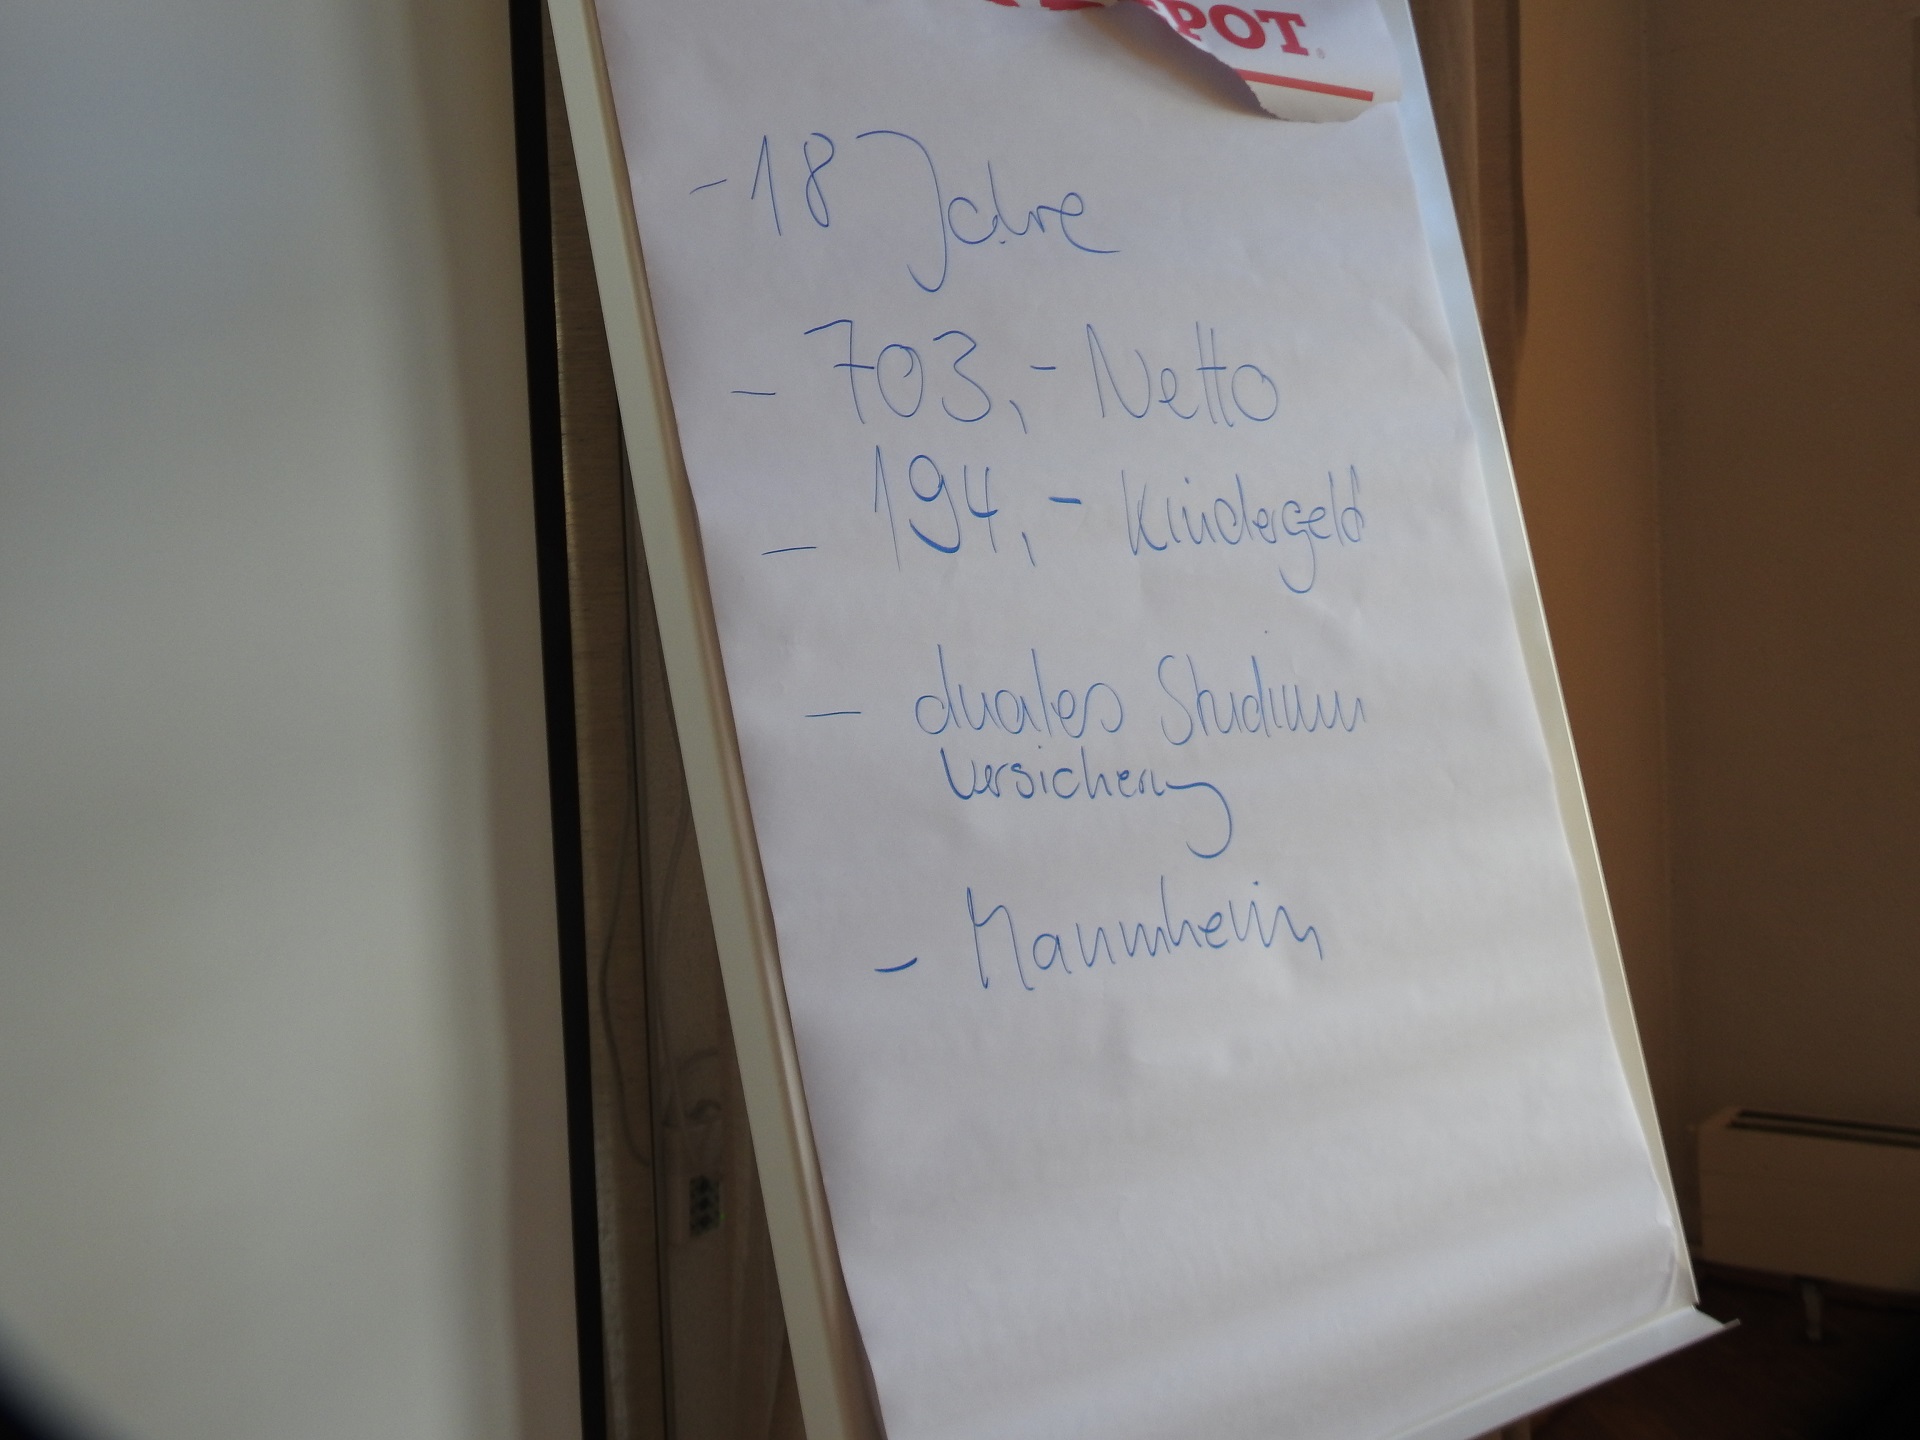 POT
- 18 Jahre
- 703,- Netto
- 194,- Kindergeld
- duales Studium
Versicherung
- Mannheim